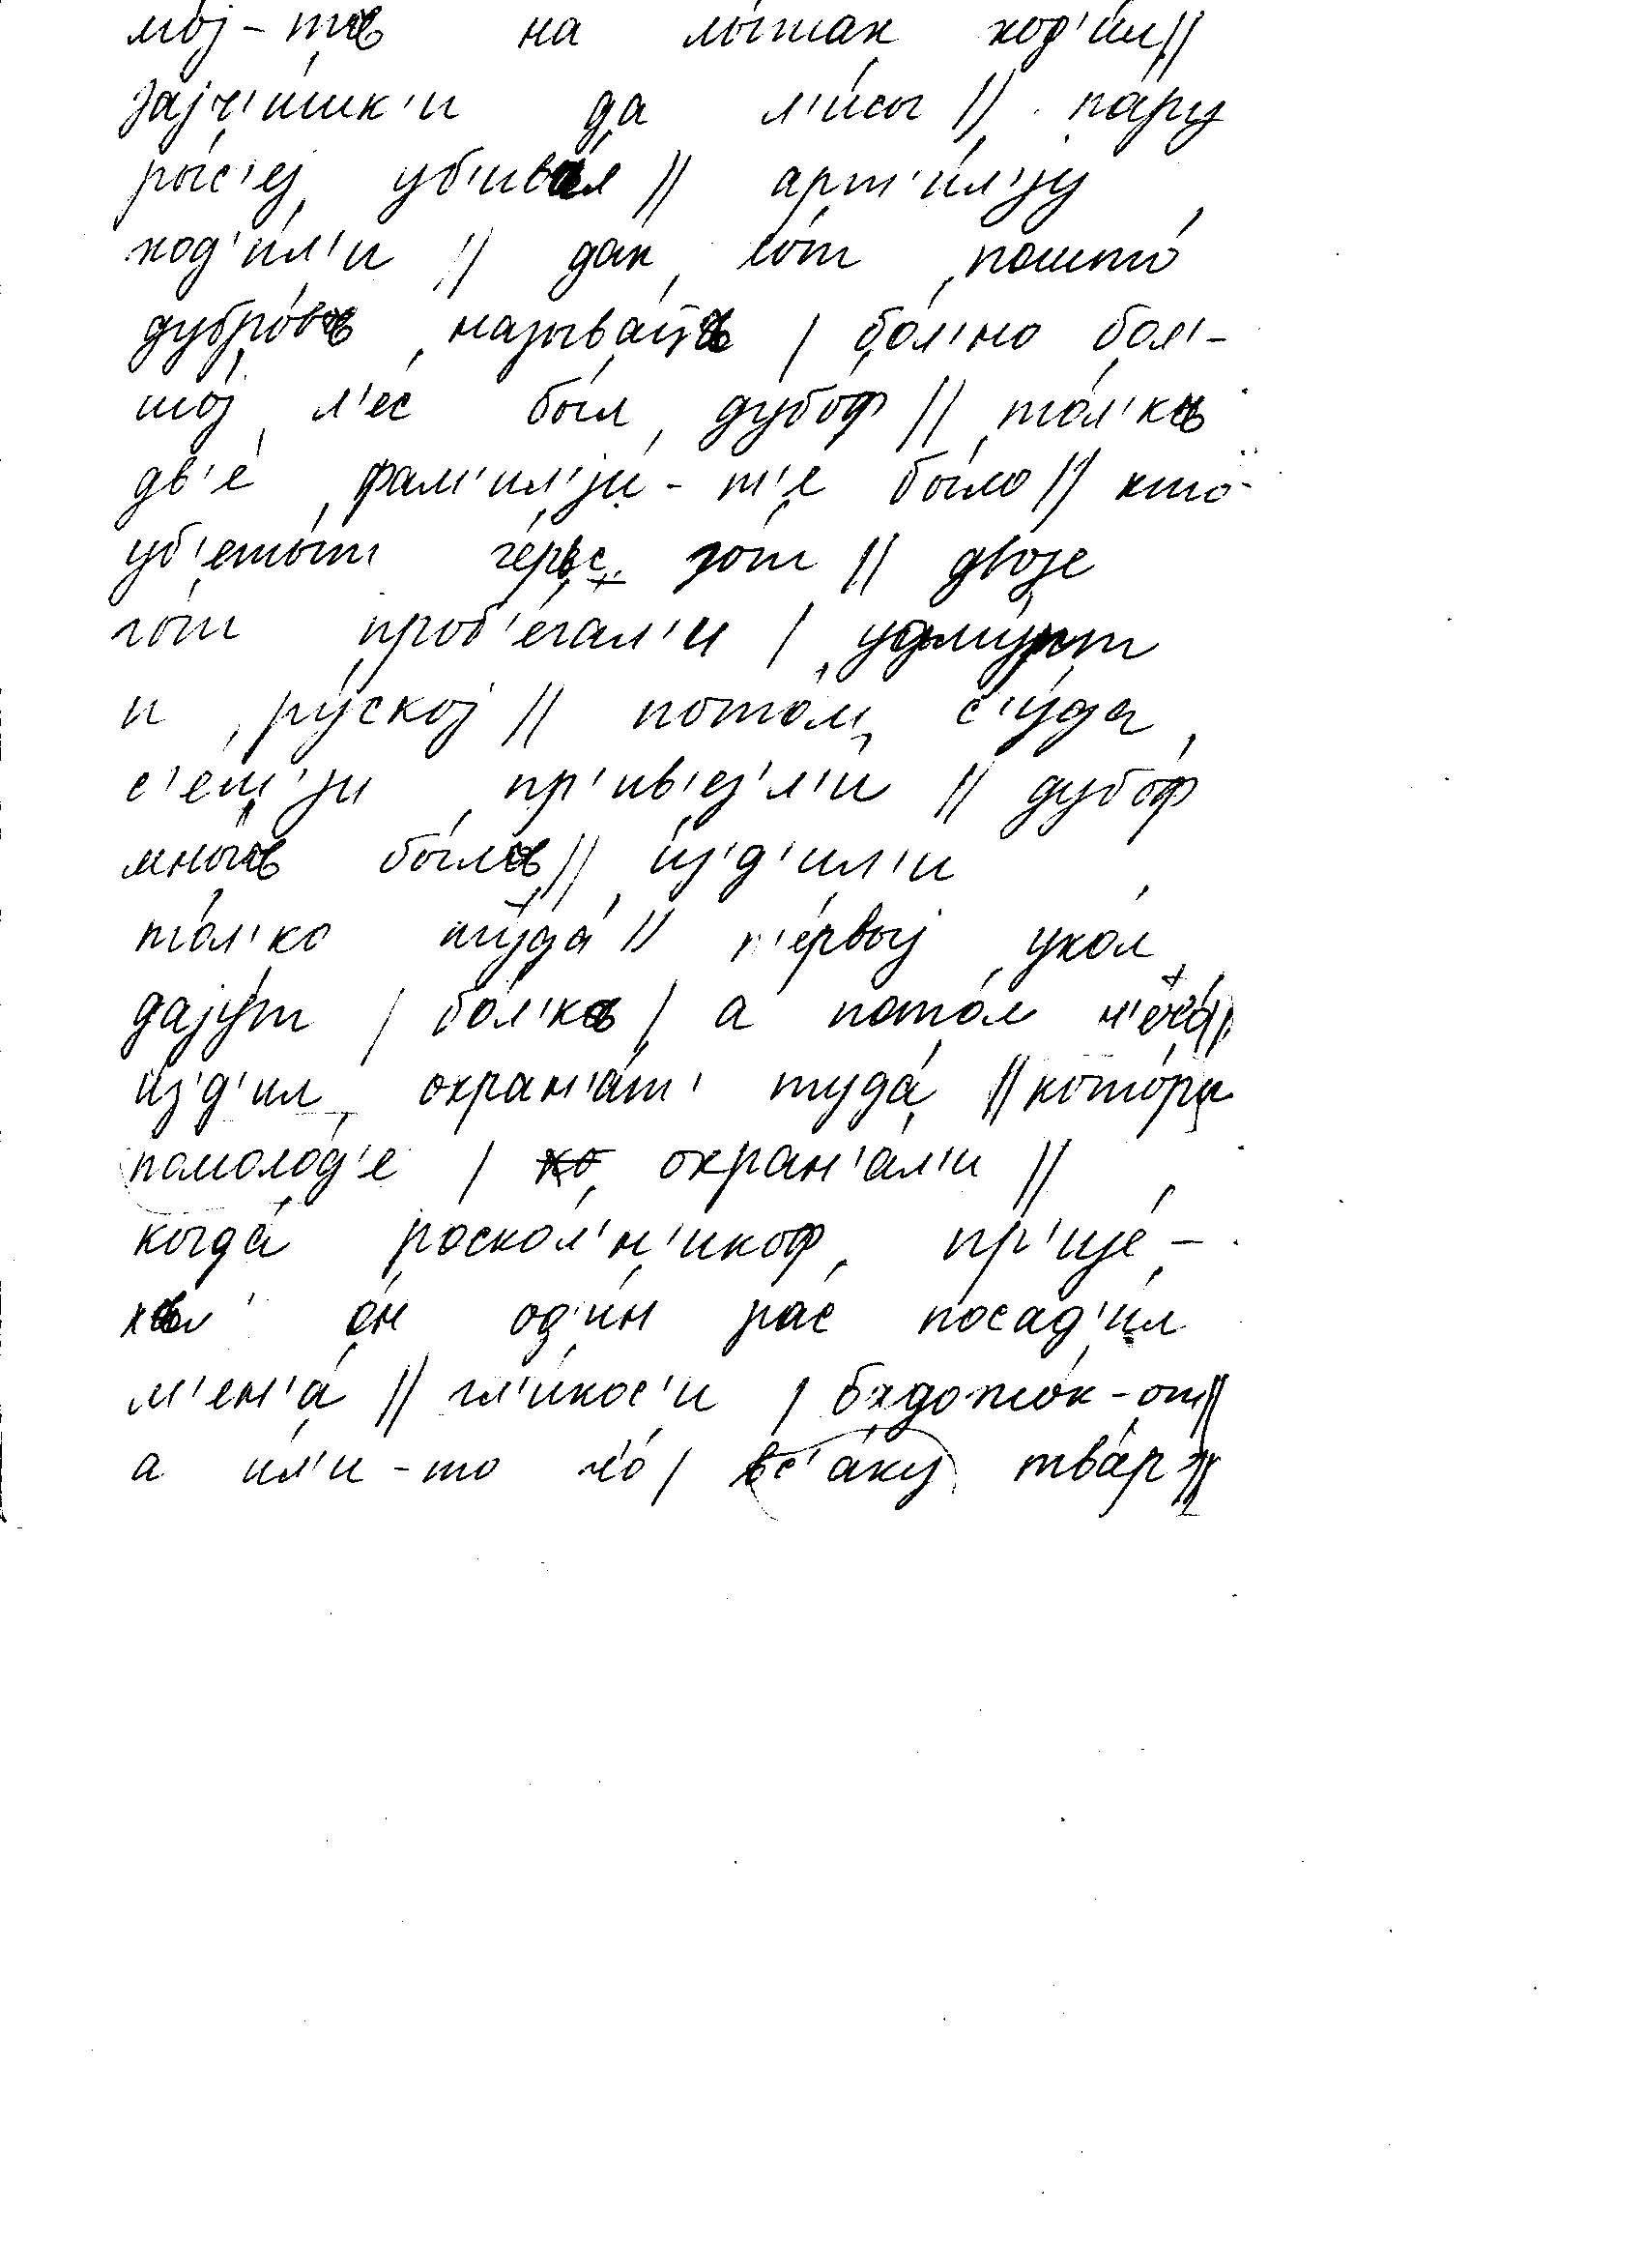 мо́j-тъ на лы́жах ход'и́л//
заjч'и́шк'и да л'и́сы // па́ру
ры́с'еj уб'ива́л // арт'и́л'jу
ход'и́л'и // дак во́т пошто́
дубро́въ называ́йцъ / бо́л'но бол'-
шо́j л'е́с бы́л дубо́ф // то́л'къ
дв'е́ фам'и́л'jи-т'е бы́ло // кто
го́т проб'е́гал'и / удму́рт
и ру́скоj // пото́м с'уда́
с'ем'jи́ пр'ив'ез'л'и́ // дубо́ф
мно́гъ бы́лъ // и́з'д'ил'и
то́л'ко туда́ // п'е́рвыj уко́л
даjу́т / бо́л'къ / а пото́м н'ечо́//
и́з'д'ил охран'а́т' туда́ // кото́ры
помоло́д'е / охран'а́л'и //
когда́ роско́л'н'икоф пр'иjе́-
хъл о́н од'и́н ра́с посад'и́л
м'ен'а́ // гл'и́кос'и / бъдожо́к-от//
а ил'и-то чо́ / вс'а́ку тва́р'//